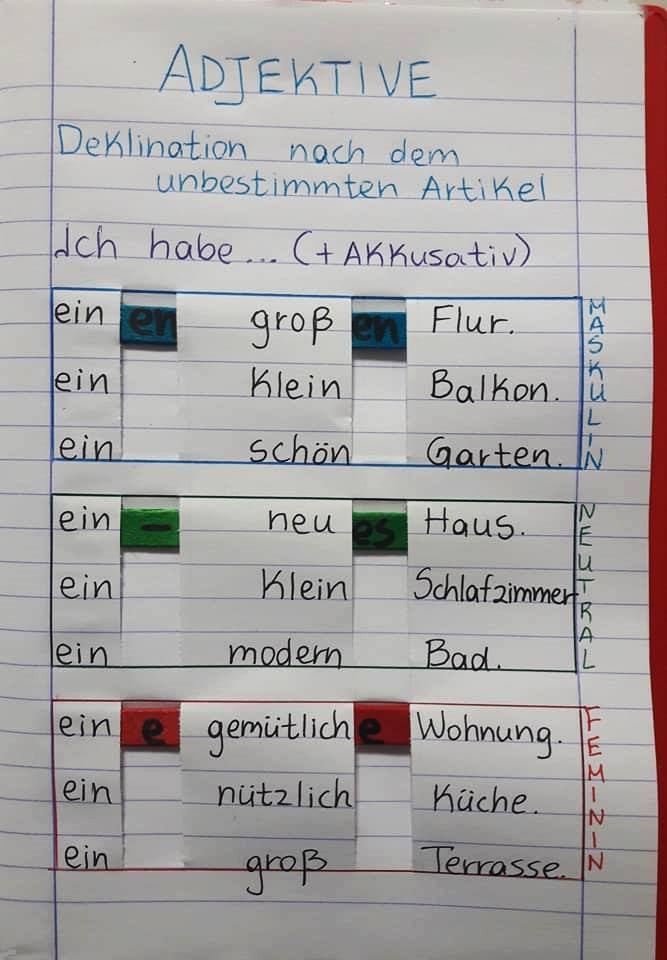 ADJEKTIVE
Deklination nach dem
unbestimmten Artikel
Ich habe... (+ AKKusativ)
ein en groß en Flur.
ein Klein Balkon.
ein schön Garten.
MASKULIN
ein - neu es Haus.
ein Klein Schlafzimmer
ein modern Bad.
NEUTRAL
ein e gemütlich e Wohnung.
ein nützlich Küche.
ein groß Terrasse.
FEMININ